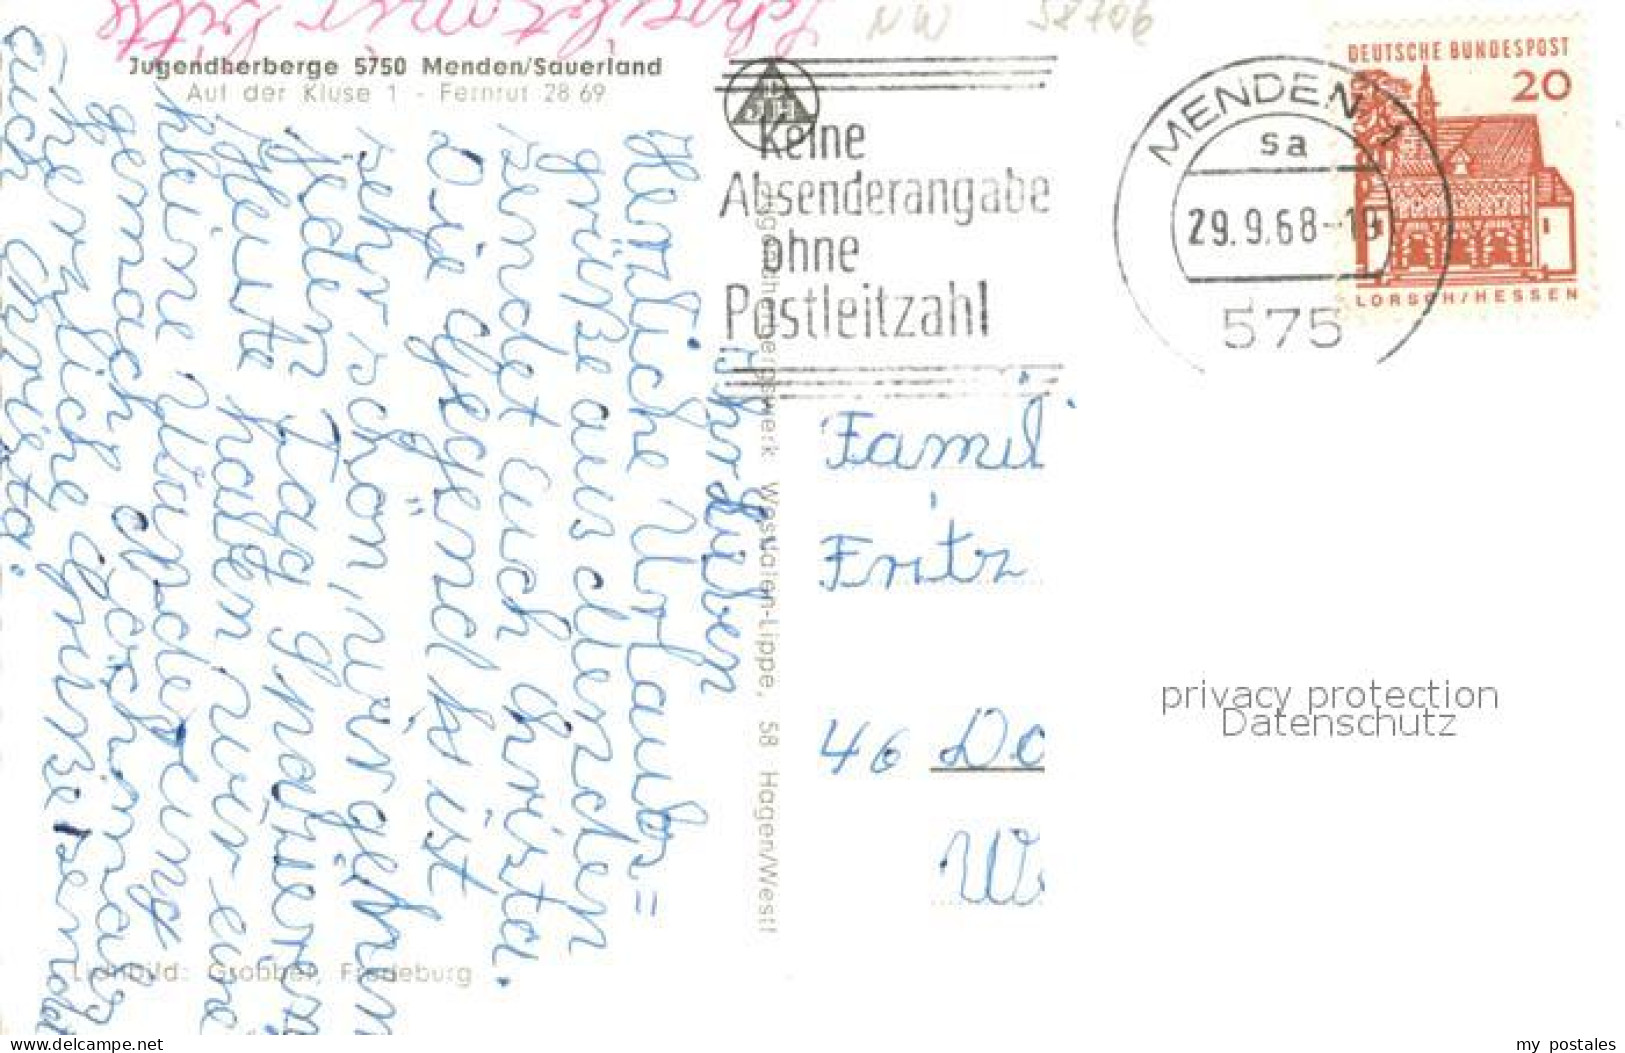 Schreibt mir bitte
NW 58706
Jugendherberge 5750 Menden/Sauerland
Auf der Kluse 1 - Fernruf 28 69
Keine
Absenderangabe
ohne
Postleitzahl
MENDEN 1
sa
29.9.68-19
575
DEUTSCHE BUNDESPOST
20
LORSCH/HESSEN
Ihr Lieben
Herzliche Urlaubs=
grüße aus Menden
sendet Euch Christa.
Die Gegend ist
sehr schön, wir gehn
jeden Tag
Heute haben wir eine
kleine Wanderung
gemacht
Herzliche Grüße sendet
auch Christa.
Westfalen-Lippe, 58 Hagen/Westf
Famil
Fritz
46 Do
W
privacy protection
Datenschutz
Lichtbild: Grobbel, Fredeburg
www.delcampe.net
my_postales